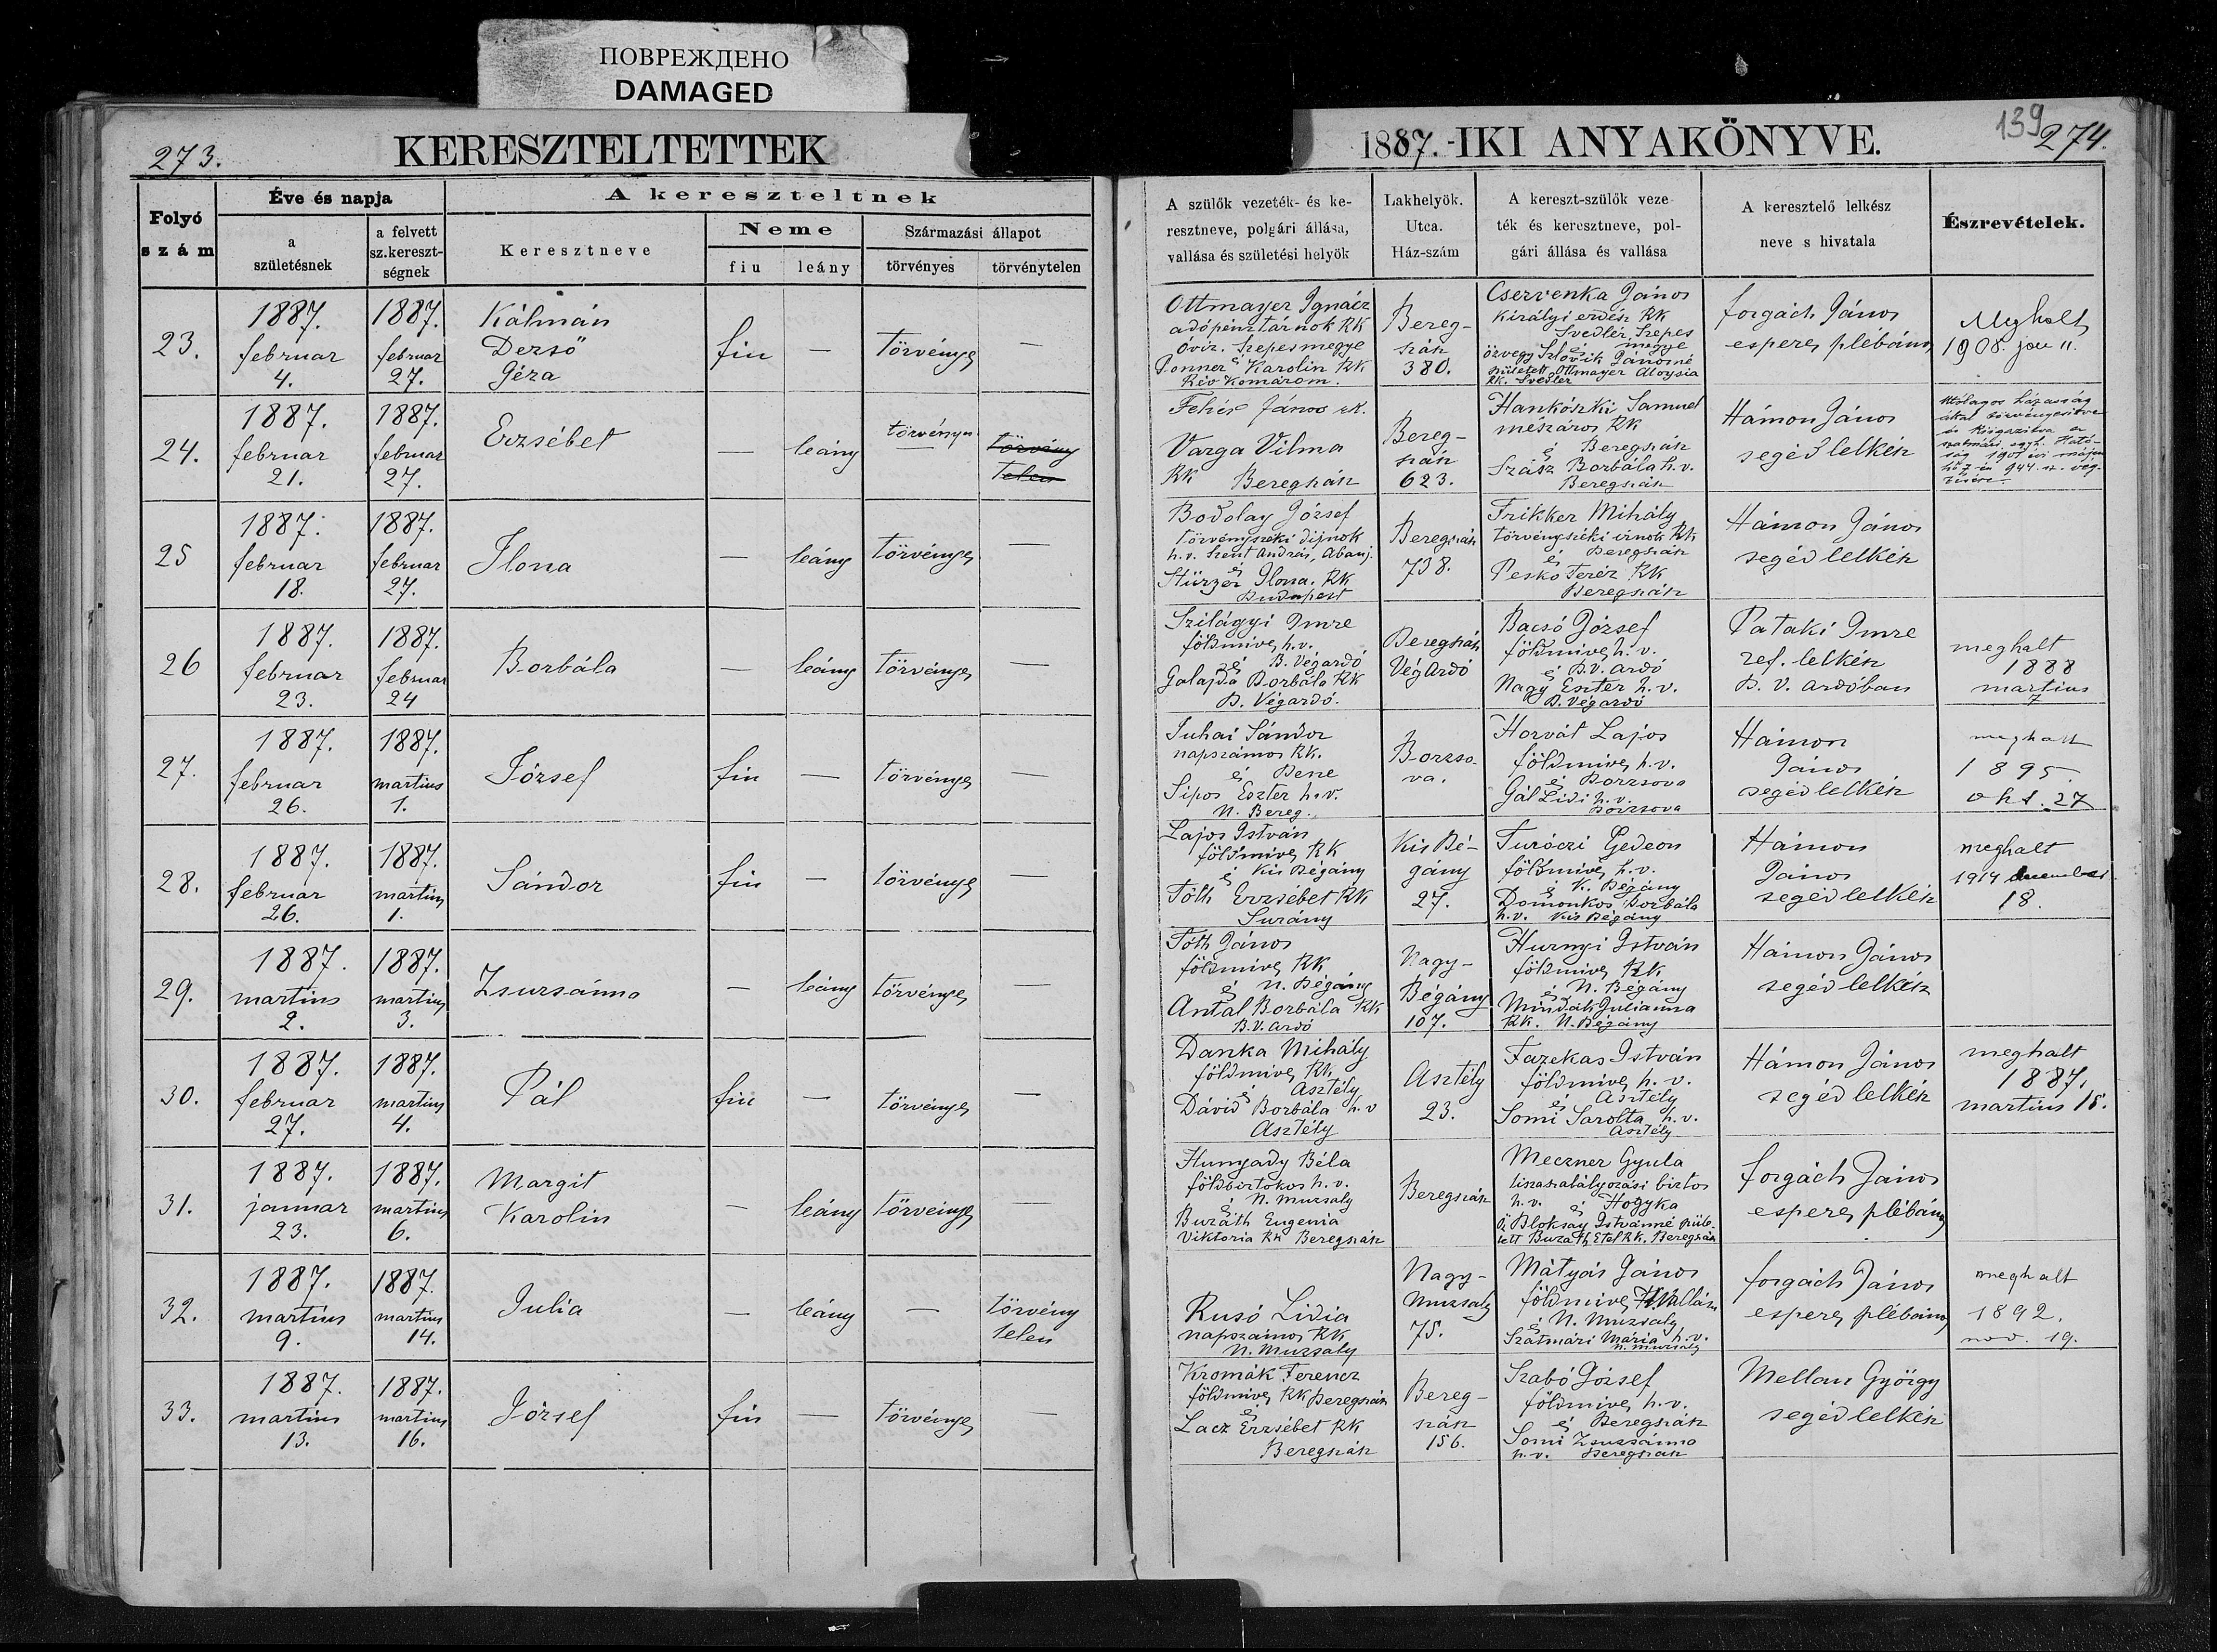 ПОВРЕЖДЕНО
DAMAGED
273.
KERESZTELTETTEK
Folyó
szám
Éve és napja
a
születésnek
a felvett
sz.kereszt-
ségnek
A kereszteltnek
Keresztneve
Neme
fiu
leány
Származási állapot
törvényes
törvénytelen
23.
1887.
februar
4.
1887.
februar
27.
Kálmán
Derső
Géza
fiu
—
törvényes
—
24.
1887.
februar
21.
1887.
februar
27.
Erzsébet
—
leány
törvényes
törvény
telen
25
1887.
februar
18.
1887.
februar
27.
Ilona
—
leány
törvényes
—
26
1887.
februar
23.
1887.
februar
24
Borbála
—
leány
törvényes
—
27.
1887.
februar
26.
1887.
martius
1.
József
fiu
—
törvényes
—
28.
1887.
februar
26.
1887.
martius
1.
Sándor
fiu
—
törvényes
—
29.
1887.
martius
2.
1887.
martius
3.
Zsuzsánna
—
leány
törvényes
—
30.
1887.
februar
27.
1887.
martius
4.
Pál
fiu
—
törvényes
—
31.
1887.
januar
23.
1887.
martius
6.
Margit
Karolin
—
leány
törvényes
—
32.
1887.
martius
9.
1887.
martius
14.
Julia
—
leány
—
törvény
telen
33.
1887.
martius
13.
1887.
martius
16.
József
fiu
—
törvényes
—
1887.-IKI ANYAKÖNYVE.
139
274.
A szülők vezeték- és ke-
resztneve, polgári állása,
vallása és születési helyök
Lakhelyök.
Utca.
Ház-szám
A kereszt-szülők veze
ték és keresztneve, pol-
gári állása és vallása
A keresztelő lelkész
neve s hivatala
Észrevételek.
Ottmayer Ignácz
adópénztárnok RK
Óvíz. Szepesmegye
é
Ponner Karolin RK
Rév Komárom.
Bereg-
szász
380.
Cservenka János
királyi erdész RK
Svedlér Szepes
é megye
özvegy Szlovik Jánosné
született Ottmayer Aloysia
RK. Svedlér
forgách János
esperes plébános
Meghalt
1908. jan 11.
Fehér János rk.
Varga Vilma
RK Beregszász
Bereg-
szász
623.
Hankószki Samuel
mészáros RK
é Beregszász
Szász Borbála h.v.
Beregszász
Hámon János
segéd lelkész
Utólagos házasság
által törvényesitve
és kiigazitva a
szatmári egyh. Ható-
ság 1901 évi május
hó 7 én 944. sz. vég-
zésére.
Bodolay József
törvényszéki dijnok
h.v. Szent András, Abauj.
é
Stürzer Ilona. RK
Budapest
Beregszász
738.
Frikker Mihály
törvényszéki irnok RK
é Beregszász
Peskó Teréz RK
Beregszász
Hámon János
segéd lelkész
Szilágyi Imre
földmives h.v.
é B. Végardó
Galajda Borbála RK
B. Végardó.
Beregszász
Végardó
Bacsó József
földmives h.v.
é B.V. Ardó
Nagy Eszter h.v.
B. Végardó
Pataki Imre
ref. lelkész
B. V. Ardóban
meghalt
1888
martius
7
Juhai Sándor
napszámos RK.
é Bene
Sipos Eszter h.v.
N. Bereg.
Borzso-
va.
Horvát Lajos
földmives h.v.
é Borzsova
Gál Lidi h.v.
Borzsova
Hámon
János
segéd lelkész
meghalt
1895.
okt. 27
Lajos István
földmives RK
é Kis Bégány
Tóth Erzsébet RK
Surány
Kis Bé-
gány
27.
Turóczi Gedeon
földmives h.v.
é K. Bégány
Domonkos Borbála
h.v. Kis Bégány
Hámon
János
segéd lelkész
meghalt
1914 december
18.
Tóth János
földmives RK
é N. Bégány
Antal Borbála RK
B.V. Ardó
Nagy-
Bégány
107.
Hurnyi István
földmives RK
é N. Bégány
Mindák Julianna
RK. N. Bégány
Hámon János
segéd lelkész
Danka Mihály
földmives RK
é Asztély
Dávid Borbála h.v
Asztély
Asztély
23.
Fazekas István
földmives h.v.
é Asztély
Somi Sarolta h.v.
Asztély
Hámon János
segéd lelkész
meghalt
1887.
martius 15.
Hunyady Béla
földbirtokos h.v.
é N. Muzsaly
Buzáth Eugenia
Viktoria RK Beregszász
Beregszász
Meczner Gyula
tiszaszabályozási biztos
h.v. é Hogyka
Ö. Bloksay Istvánné szüle-
tett Buzáth Etel RK. Beregszász
forgách János
esperes plébános
Rusó Lidia
napszámos RK
N. Muzsaly
Nagy-
Muzsaly
75.
Mátyás János
földmives H. Vallásu
é N. Muzsaly
Szatmári Mária h.v.
N. Muzsaly
forgách János
esperes plébános
meghalt
1892.
nov. 19.
Kromák Ferencz
földmives RK Beregszász
é
Lacz Erzsébet RK
Beregszász
Bereg-
szász
156.
Szabó József
földmives h.v.
é Beregszász
Somi Zsuzsánna
h.v. Beregszász
Mellau György
segéd lelkész